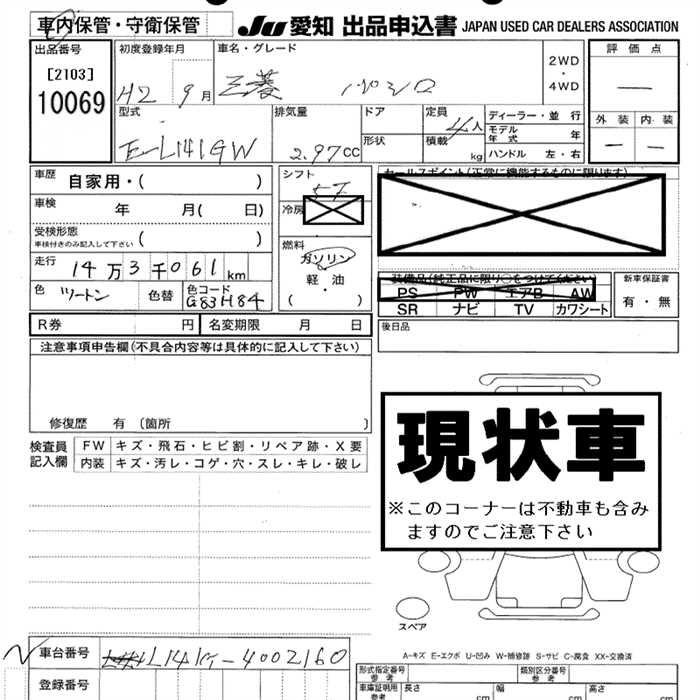 車内保管・守衛保管
JU 愛知 出品申込書 JAPAN USED CAR DEALERS ASSOCIATION
出品番号 初度登録年月 車名・グレード 評価点
[2103]
10069
H2 9月 三菱 パジロ 2WD・4WD
型式 排気量 ドア 定員 ディーラー・並行
外装 内装
E-L141GW 2.97cc 形状 4人 積載 kg モデル年式 年
ハンドル 左・右
車歴 自家用・( ) シフト 5F セールスポイント(正常に機能するものに限ります)
車検 年 月( 日) 冷房
受検形態
車検付きのみ記入して下さい ( ) 燃料
走行 14万3千061km ガソリン
軽・油
( )
装備品(純正品に限り○をつけてください) 新車保証書
PS PW エアB AW 有・無
SR ナビ TV カワシート
色 ツートン 色替 色コード G83H84
後日品
R券 円 名変期限 月 日
注意事項申告欄(不具合内容等は具体的に記入して下さい)
修復歴 有(箇所 )
現状車
※このコーナーは不動車も含み
ますのでご注意下さい
検査員記入欄 FW キズ・飛石・ヒビ割・リペア跡・X要
内装 キズ・汚レ・コゲ・穴・スレ・キレ・破レ
スペア
A-キズ E-エクボ U-凹み W-補修跡 S-サビ C-腐食 XX-交換済
車台番号 L141G-4002160
登録番号
形式指定番号 参考 類別区分番号 参考
車庫証明用 参考 長さ cm 幅 cm 高さ cm